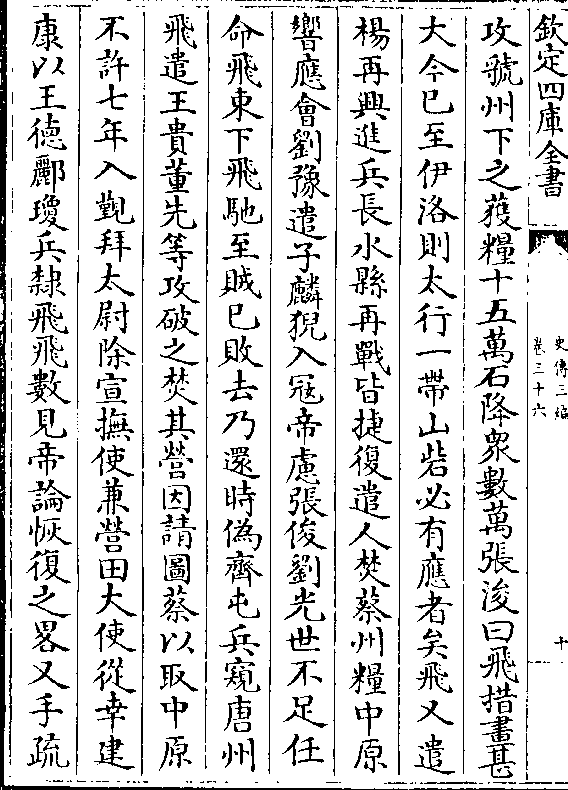 欽定四庫全書
史傳三編
卷三十六
十
攻虢州下之獲糧十五萬石降衆數萬張浚曰飛措畫甚
大今已至伊洛則太行一帶山砦必有應者矣飛又遣
楊再興進兵長水縣再戰皆捷復遣人焚蔡州糧中原
響應會劉豫遣子麟猊入寇帝慮張俊劉光世不足任
命飛東下飛馳至賊已敗去乃還時偽齊屯兵窺唐州
飛遣王貴董先等攻破之焚其營因請圖蔡以取中原
不許七年入覲拜太尉除宣撫使兼營田大使從幸建
康以王德酈瓊兵隸飛飛數見帝論恢復之畧又手疏